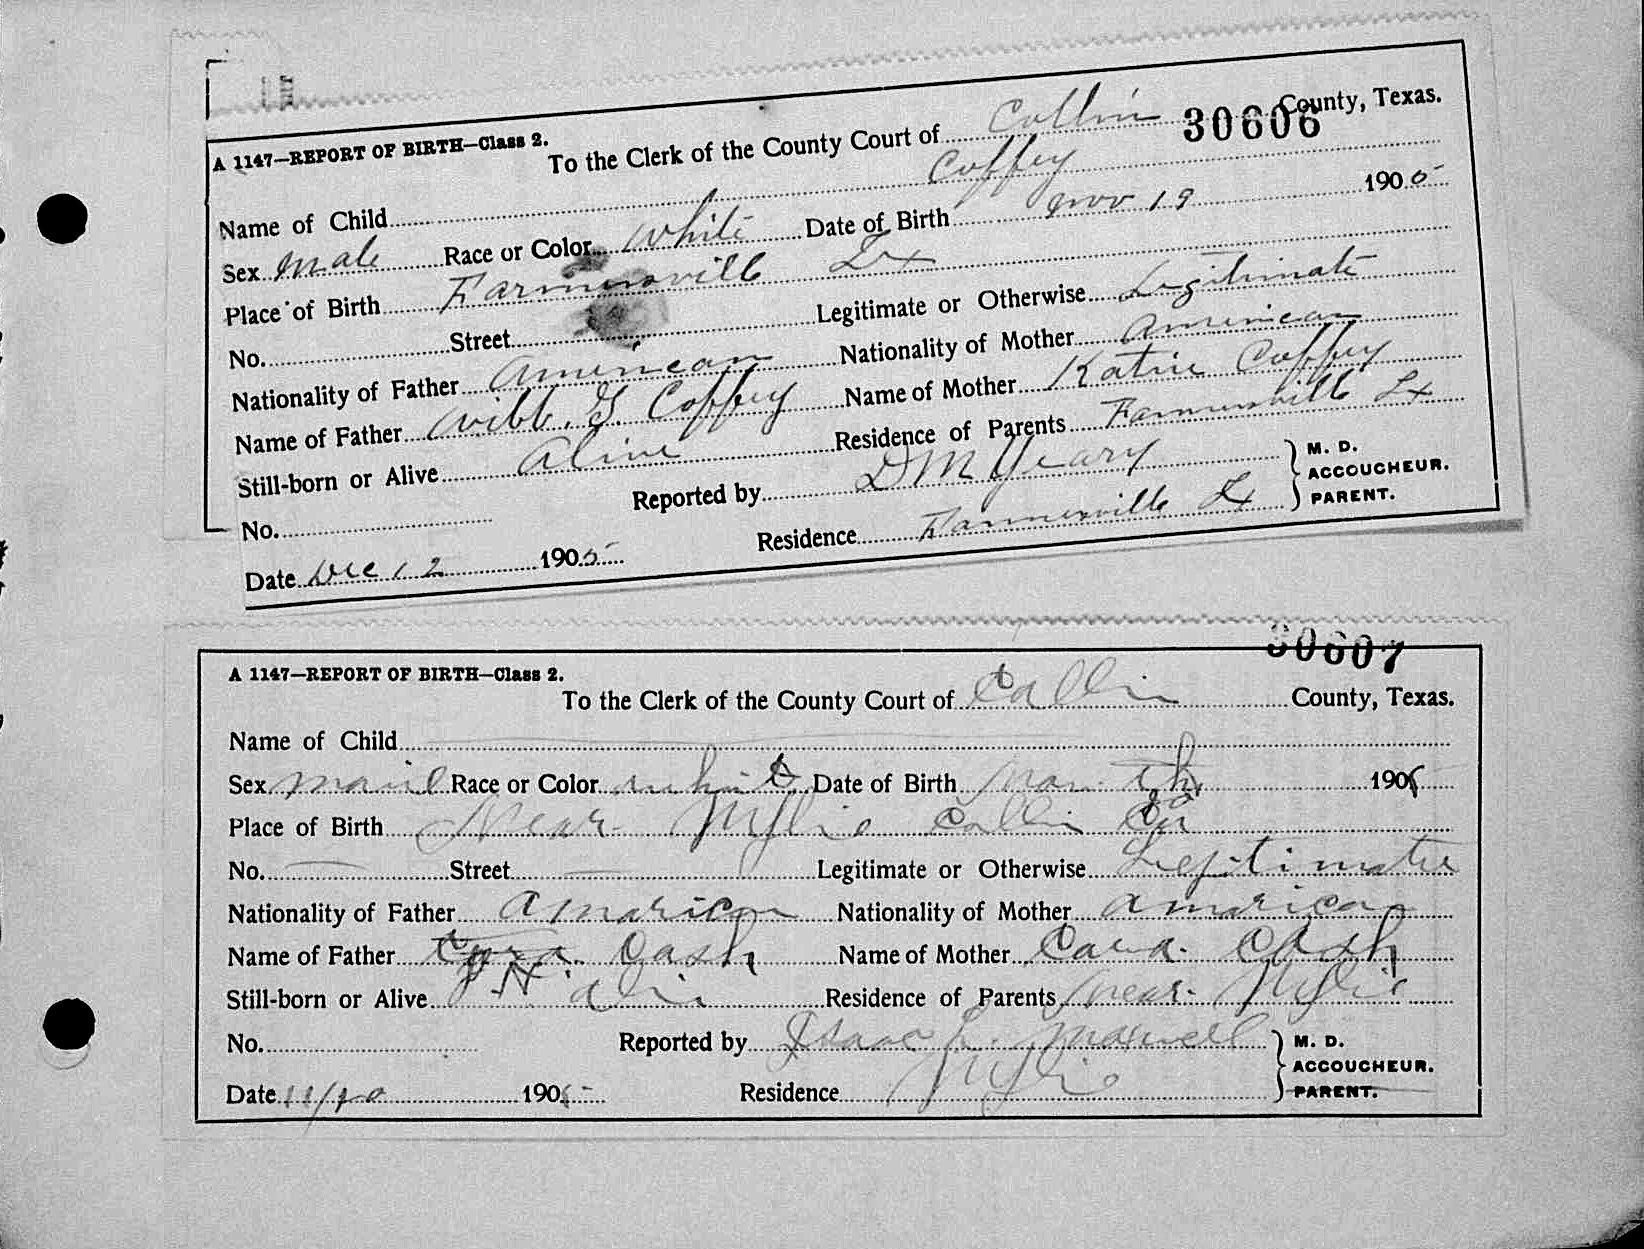 A 1147—REPORT OF BIRTH—Class 2.
To the Clerk of the County Court of Collin County, Texas.
30606
Name of Child Coffey
Sex Male Race or Color White Date of Birth Nov 19 1905
Place of Birth Farmersville Tx
No. Street Legitimate or Otherwise Legitimate
Nationality of Father American Nationality of Mother American
Name of Father Webb. G. Coffey Name of Mother Katie Coffey
Still-born or Alive Alive Residence of Parents Farmersville Tx
No. Reported by D M Yeary M. D. ACCOUCHEUR. PARENT.
Date Dec 12 1905 Residence Farmersville Tx
30607
A 1147—REPORT OF BIRTH—Class 2.
To the Clerk of the County Court of Collin County, Texas.
Name of Child
Sex Race or Color Date of Birth 1905
Place of Birth Near Wylie Collin Co
No. — Street — Legitimate or Otherwise
Nationality of Father Nationality of Mother
Name of Father Cash Name of Mother Cash
Still-born or Alive Residence of Parents near Wylie
No. Reported by Isaac L. Maxwell M. D. ACCOUCHEUR. PARENT.
Date 1905 Residence Wylie